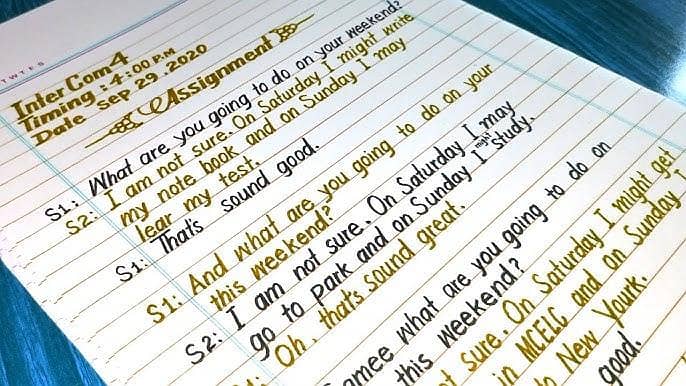 InterCom 4
Timing : 4:00 P.M
Date Sep 29, 2020
Assignment
S1: What are you going to do on your weekend?
S2: I am not sure. On Saturday I might write
my note book and on Sunday I may
lear my test.
S1: That's sound good.
S1: And what are you going to do on your
this weekend?
S2: I am not sure. On Saturday I may
go to Park and on Sunday I might study.
Oh, that's sound great.
what are you going to do on
this weekend?
sure. On Saturday I might get
in MCELC and on Sunday I
New Yourk.
good.